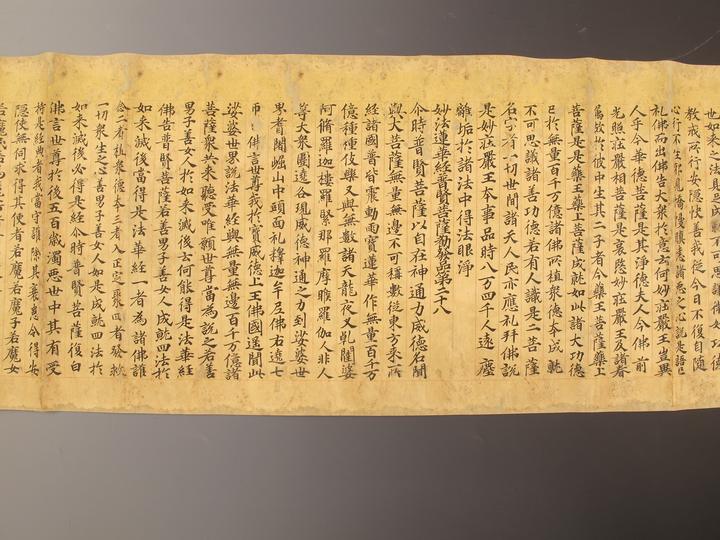 也如来之法具足
教戒所行安隱快善我從今日不復自隨
心行不生邪見憍慢瞋恚諸惡之心說是語已
礼佛而出佛告大衆於意云何妙莊嚴王豈異
人乎今華德菩薩是其淨德夫人今佛前
光照莊嚴相菩薩是哀愍妙莊嚴王及諸眷
屬故於彼中生其二子者今藥王菩薩藥上
菩薩是是藥王藥上菩薩成就如此諸大功德
已於無量百千万億諸佛所植衆德本成就
不可思議諸善功德若有人識是二菩薩
名字者一切世間諸天人民亦應礼拜佛說
是妙莊嚴王本事品時八万四千人遠塵
離垢於諸法中得法眼淨
妙法蓮華經普賢菩薩勸發品第二十八
尒時普賢菩薩以自在神通力威德名聞
與大菩薩無量無邊不可稱數從東方来所
經諸國普皆震動雨寶蓮華作無量百千万
億種種伎樂又與無數諸天龍夜叉乹闥婆
阿脩羅迦樓羅緊那羅摩睺羅伽人非人
等大衆圍遶各現威德神通之力到娑婆世
界耆闍崛山中頭面礼釋迦牟尼佛右遶七
帀白佛言世尊我於寶威德上王佛國遥聞此
娑婆世界說法華經與無量無邊百千万億諸
菩薩衆共来聽受唯願世尊當為說之若善
男子善女人於如来滅後云何能得是法華經
佛告普賢菩薩若善男子善女人成就四法於
如来滅後當得是法華經一者為諸佛護
念二者植衆德本三者入正定聚四者發救
一切衆生之心善男子善女人如是成就四法於
如来滅後必得是經尒時普賢菩薩復白
佛言世尊於後五百歲濁惡世中其有受
持是經典者我當守護除其衰患令得安
隱使無伺求得其便者若魔若魔子若魔女
若魔民